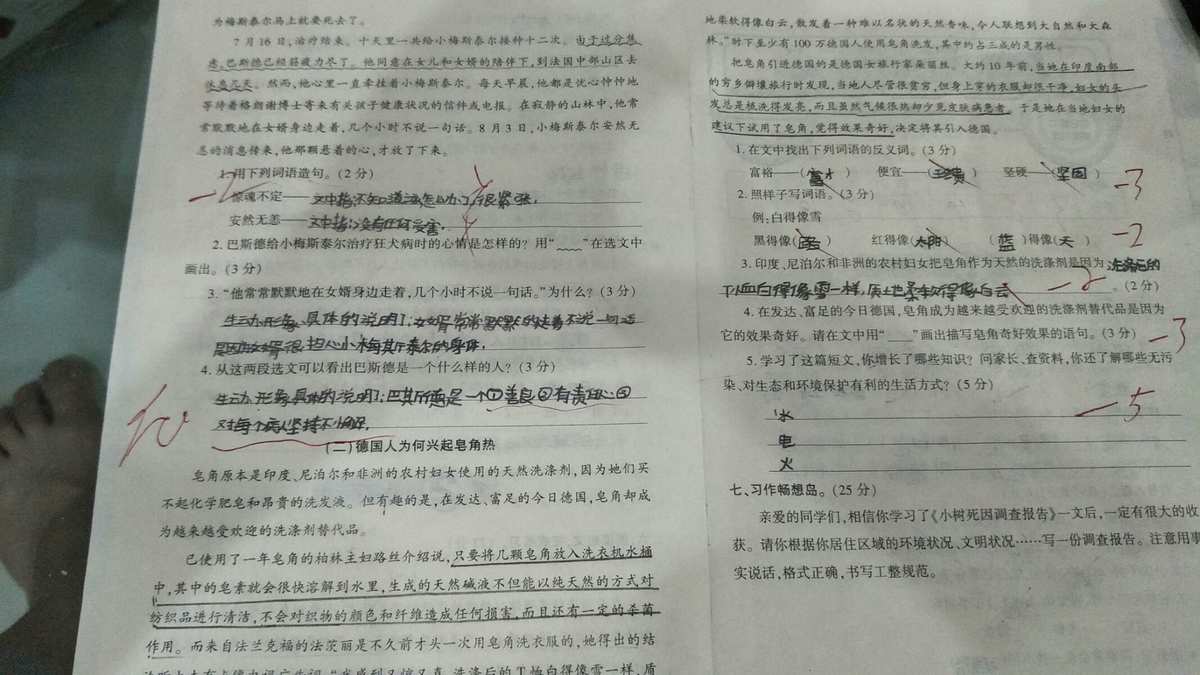 为梅斯泰尔马上就要死去了。
7月16日,治疗结束。十天里一共给小梅斯泰尔接种十二次。由于过分焦
虑,巴斯德已经筋疲力尽了。他同意在女儿和女婿的陪伴下,到法国中部山区去
休息几天。然而,他心里一直牵挂着小梅斯泰尔。每天早晨,他都是忧心忡忡地
等待着格朗谢博士寄来有关孩子健康状况的信件或电报。在寂静的山林中,他常
常默默地在女婿身边走着,几个小时不说一句话。8月3日,小梅斯泰尔安然无
恙的消息传来,他那颗悬着的心,才放了下来。
1.用下列词语造句。(2分)
-2
惊魂不定——文中指:不知道该怎么办了,很紧张。
安然无恙——文中指:没有任何受害。
2.巴斯德给小梅斯泰尔治疗狂犬病时的心情是怎样的?用“﹏﹏”在选文中
画出。(3分)
3.“他常常默默地在女婿身边走着,几个小时不说一句话。”为什么?(3分)
生动、形象、具体的说明了:女婿常常默默的走着不说一句话
是因女婿很担心小梅其斤泰尔的身体.
4.从这两段选文可以看出巴斯德是一个什么样的人?(3分)
生动、形象具体的说明了:巴其斤德是一个①善良②有责任心③
对每个病人坚持不懈.
10
(二)德国人为何兴起皂角热
皂角原本是印度、尼泊尔和非洲的农村妇女使用的天然洗涤剂,因为她们买
不起化学肥皂和昂贵的洗发液。但有趣的是,在发达、富足的今日德国,皂角却成
为越来越受欢迎的洗涤剂替代品。
已使用了一年皂角的柏林主妇路丝介绍说,只要将几颗皂角放入洗衣机水桶
中,其中的皂素就会很快溶解到水里,生成的天然碱液不但能以纯天然的方式对
纺织品进行清洁,不会对织物的颜色和纤维造成任何损害,而且还有一定的杀菌
作用。而来自法兰克福的法茨丽是不久前才头一次用皂角洗衣服的,她得出的结
洗涤后的T恤白得像雪一样,质
地柔软得像白云,散发着一种难以名状的天然香味,令人联想到大自然和大森
林。”时下至少有100万德国人使用皂角洗发,其中约占三成的是男性。
把皂角引进德国的是德国女旅行家朵丽丝。大约10年前,当她在印度南部
的穷乡僻壤旅行时发现,当地人尽管很贫穷,但身上穿的衣服却很干净,妇女的头
发总是梳洗得发亮,而且虽然气候很热却少见皮肤病患者。于是她在当地妇女的
建议下试用了皂角,觉得效果奇好,决定将其引入德国。
1.在文中找出下列词语的反义词。(3分)
富裕——( ) 便宜——( ) 坚硬——(坚固)
-3
2.照样子写词语。(3分)
例:白得像雪
黑得像( ) 红得像(太阳) (蓝)得像(天)
-2
3.印度、尼泊尔和非洲的农村妇女把皂角作为天然的洗涤剂是因为 洗涤后的
T恤白得像雪一样,质地柔软得像白云 。(2分)
-2
4.在发达、富足的今日德国,皂角成为越来越受欢迎的洗涤剂替代品是因为
它的效果奇好。请在文中用“____”画出描写皂角奇好效果的语句。(3分)
-3
5.学习了这篇短文,你增长了哪些知识?问家长、查资料,你还了解哪些无污
染、对生态和环境保护有利的生活方式?(5分)
水
-5
电
火
七、习作畅想岛。(25分)
亲爱的同学们,相信你学习了《小树死因调查报告》一文后,一定有很大的收
获。请你根据你居住区域的环境状况、文明状况……写一份调查报告。注意用事
实说话,格式正确,书写工整规范。